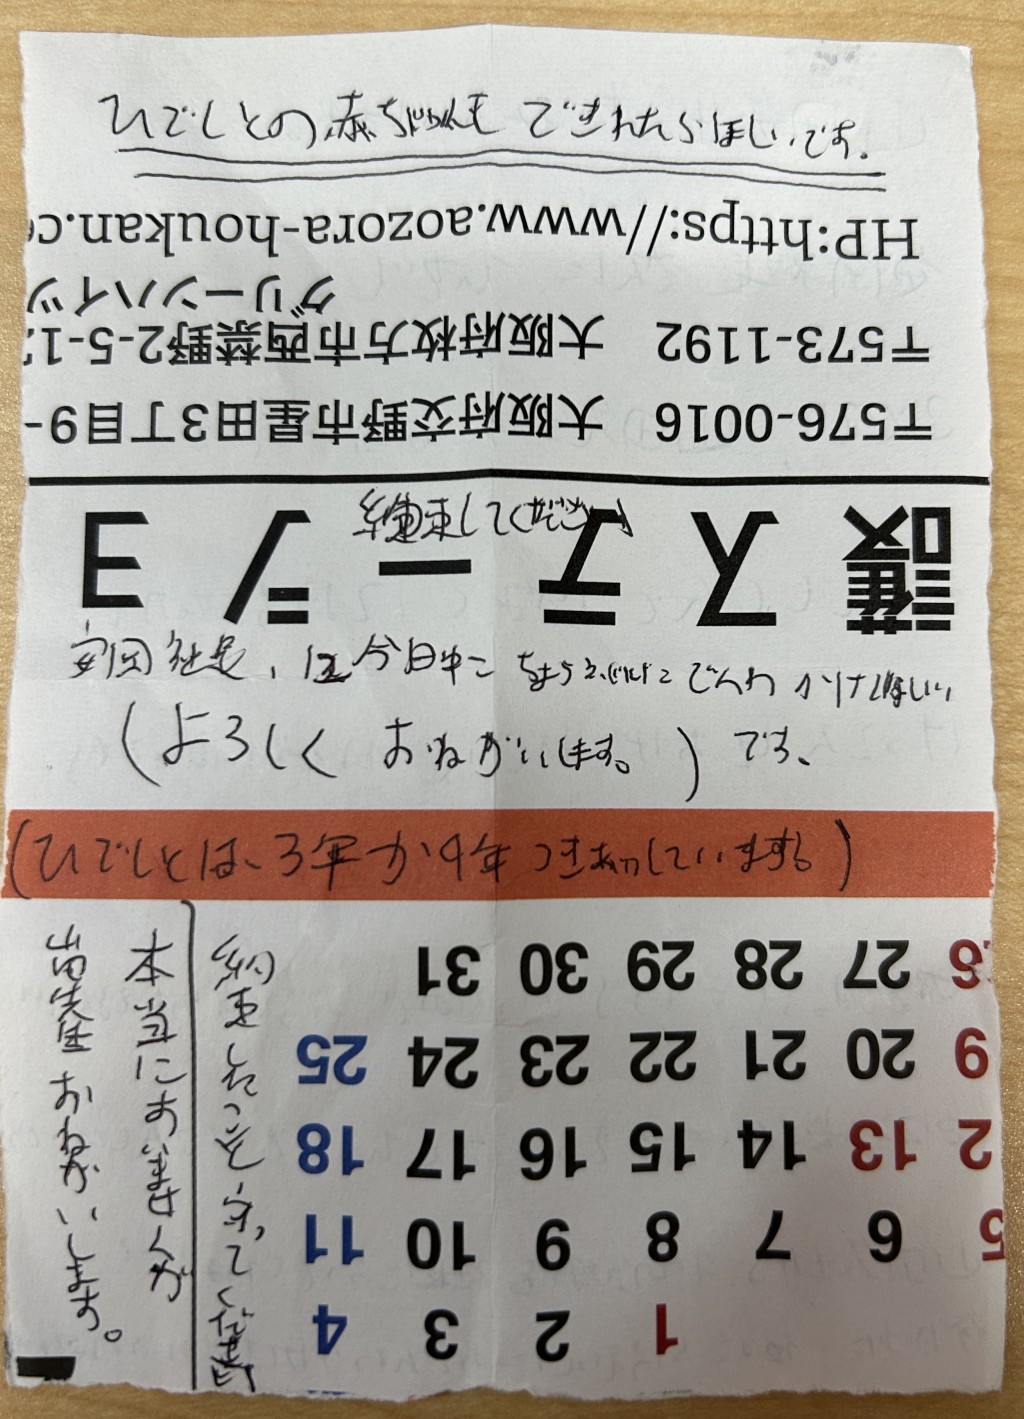 ひでしとの赤ちゃんもできれたらほしいです。
HP:https://www.aozora-houkan.c
グリーンハイツ
〒573-1192 大阪府枚方市西禁野2-5-1
〒576-0016 大阪府交野市星田3丁目9-
してください
護ステーショ
安岡社長、は今日中に でんわかけてほしい
(よろしくおねがいします。)です、
(ひでしとは、3年か4年つきあっています。)
31 30 29 28 27
25 24 23 22 21 20 9
18 17 16 15 14 13 2
11 10 9 8 7 6 5
4 3 2 1
約束したことを守ってください
本当にすいませんが
先生おねがいします。